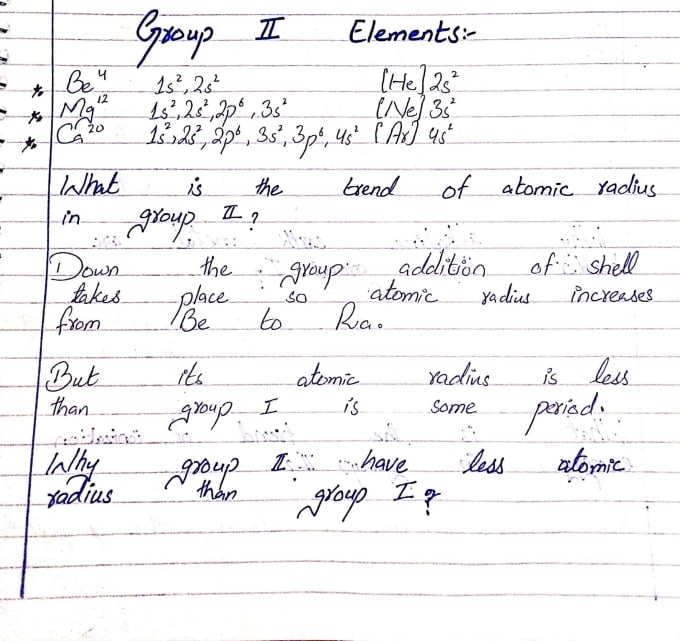 Group II Elements:-
* Be⁴ 1s², 2s² [He] 2s²
* Mg¹² 1s², 2s², 2p⁶, 3s² [Ne] 3s²
* Ca²⁰ 1s², 2s², 2p⁶, 3s², 3p⁶, 4s² [Ar] 4s²
What is the trend of atomic radius
in group II?
Down the group addition of shell
takes place so atomic radius increases
from Be to Ra.
But its atomic radius is less
than group I is some period.
Why group II have less atomic
radius than group I?